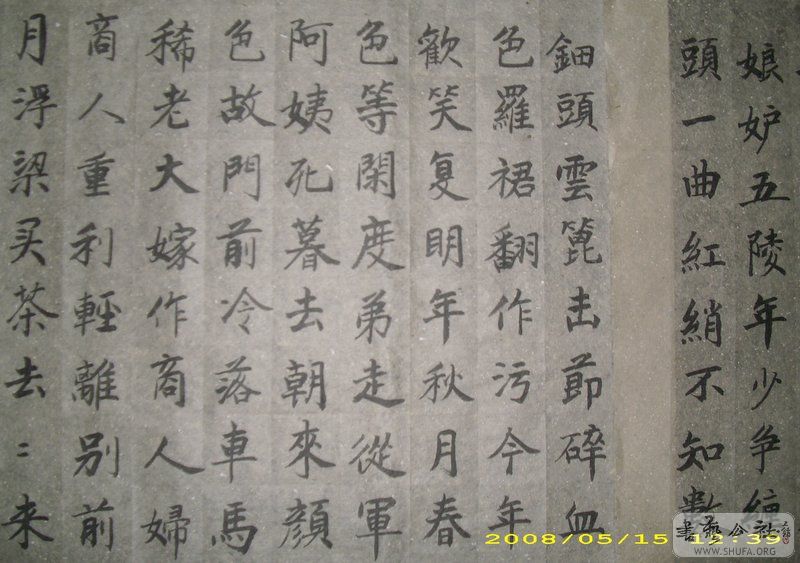 娘妒五陵年少争纏
頭一曲紅綃不知數
鈿頭雲篦击節碎血
色羅裙翻作污今年
歡笑复明年秋月春
色等閑度弟走從軍
阿姨死暮去朝來顔
色故門前冷落車馬
稀老大嫁作商人婦
商人重利輕離别前
月浮梁买茶去〻来
2008/05/15 12:39
書藝公社
WWW.SHUFA.ORG